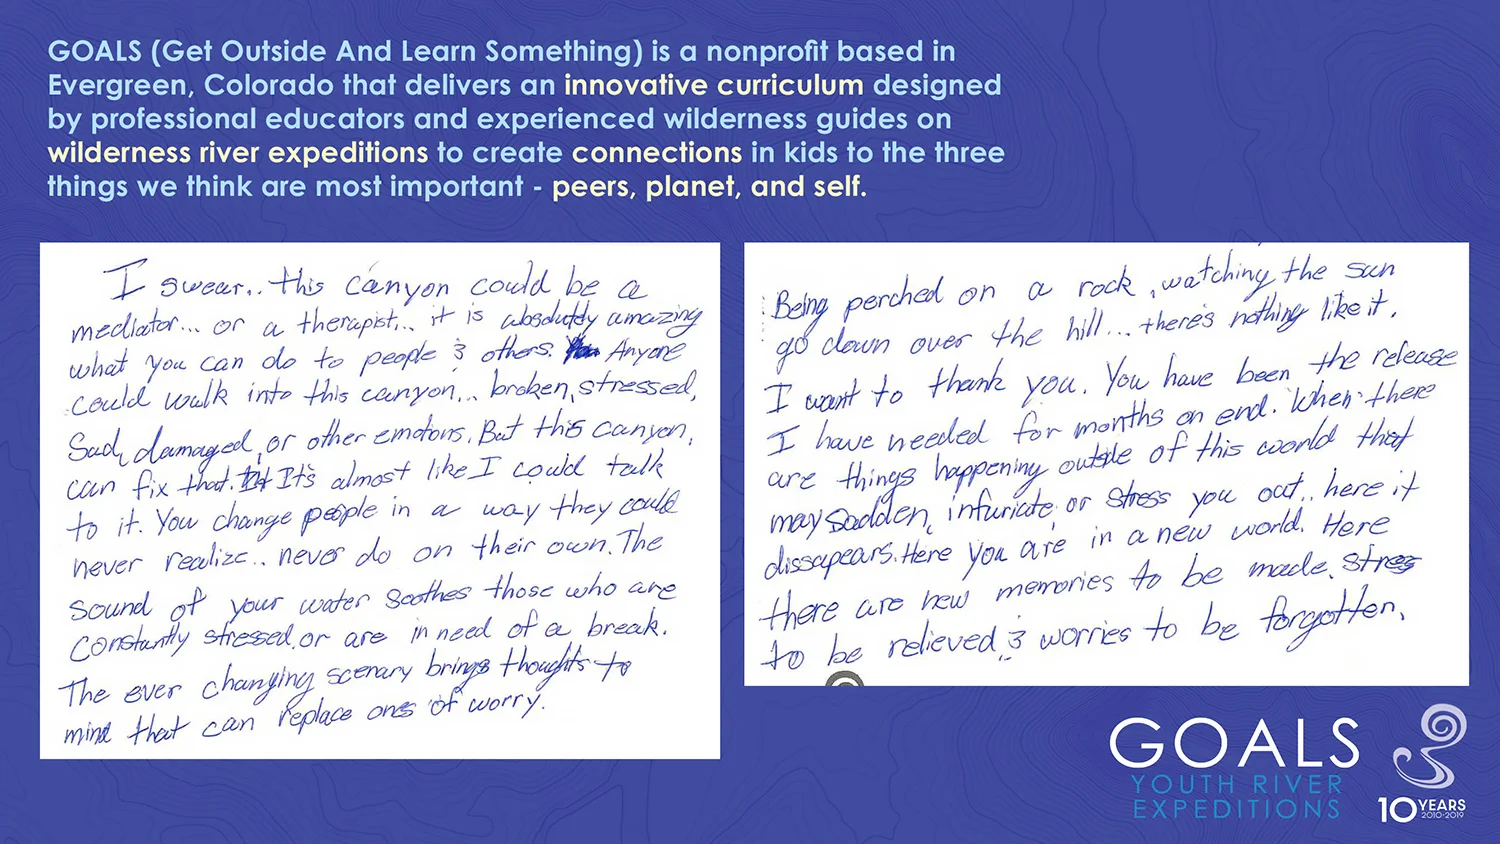 GOALS (Get Outside And Learn Something) is a nonprofit based in
Evergreen, Colorado that delivers an innovative curriculum designed
by professional educators and experienced wilderness guides on
wilderness river expeditions to create connections in kids to the three
things we think are most important - peers, planet, and self.
I swear.. this canyon could be a
mediator... or a therapist... it is absolutely amazing
what you can do to people & others. Anyone
could walk into this canyon... broken, stressed,
Sad, damaged, or other emotions. But this canyon,
can fix that. It's almost like I could talk
to it. You change people in a way they could
never realize.. never do on their own. The
sound of your water soothes those who are
constantly stressed or are in need of a break.
The ever changing scenary brings thoughts to
mind that can replace ones of worry.
Being perched on a rock, watching the sun
go down over the hill... there's nothing like it.
I want to thank you. You have been the release
I have needed for months on end. When there
are things happening outside of this world that
may sadden, infuriate, or stress you out.. here it
dissapears. Here you are in a new world. Here
there are new memories to be made. stress
to be relieved & worries to be forgotten.
GOALS
YOUTH RIVER
EXPEDITIONS
10 YEARS
2010-2019